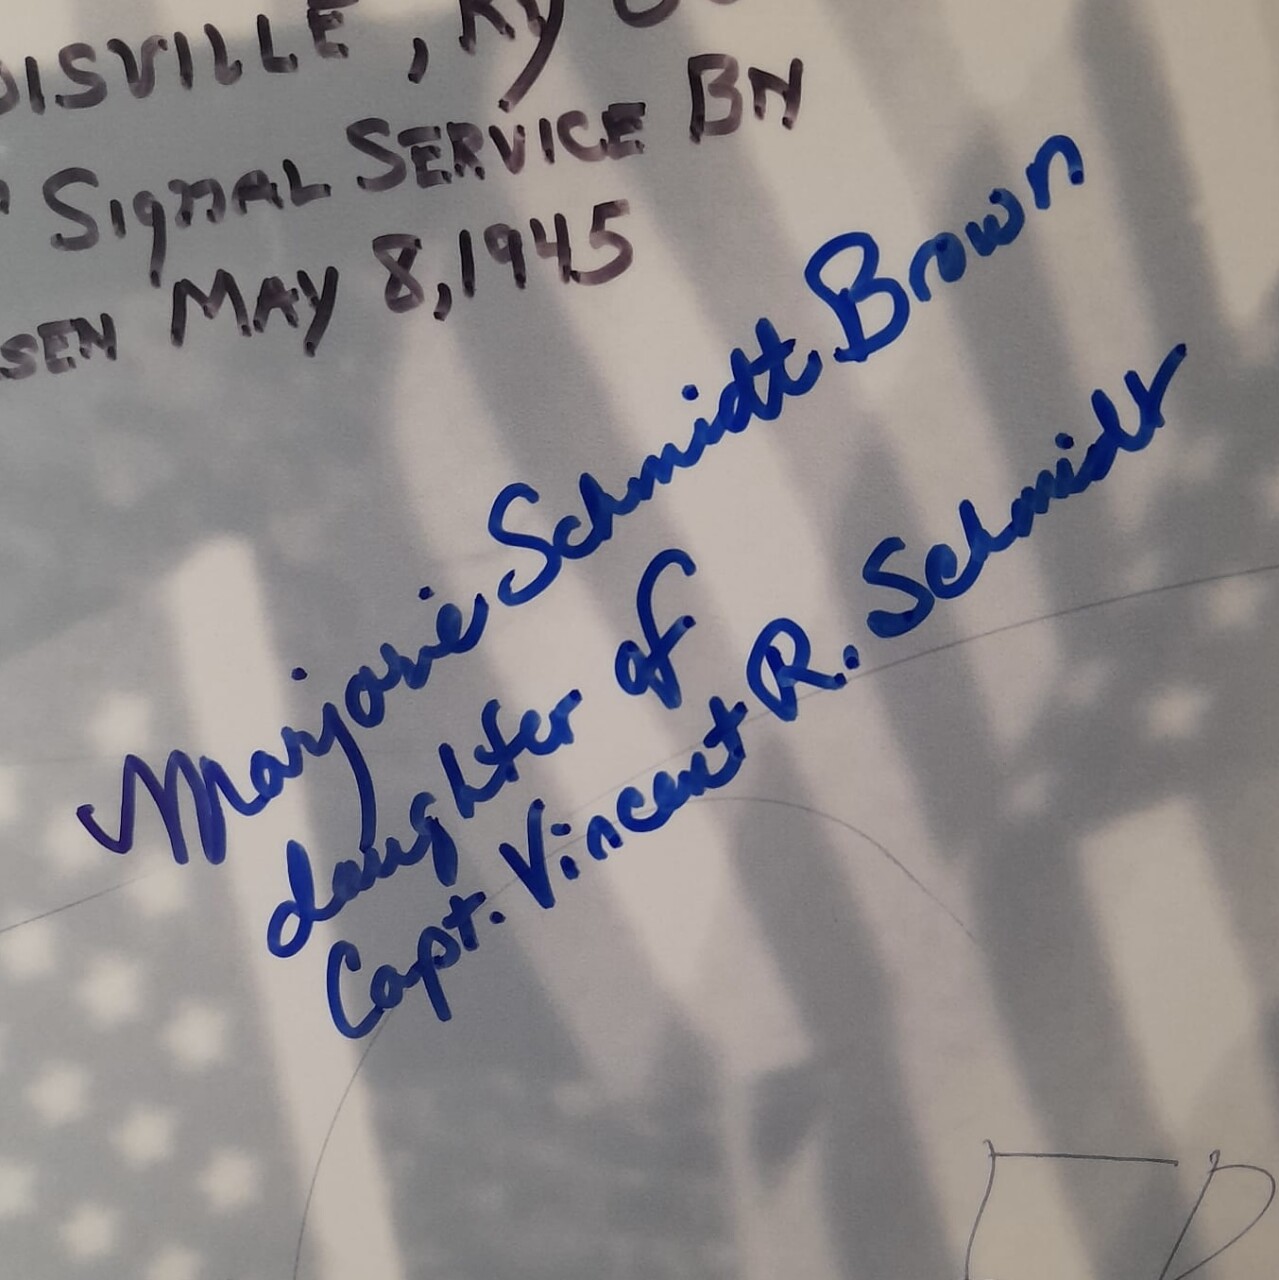 OUISVILLE, KY
SIGNAL SERVICE BN
SEN MAY 8, 1945
Marjorie Schmidt Brown
daughter of
Capt. Vincent R. Schmidt